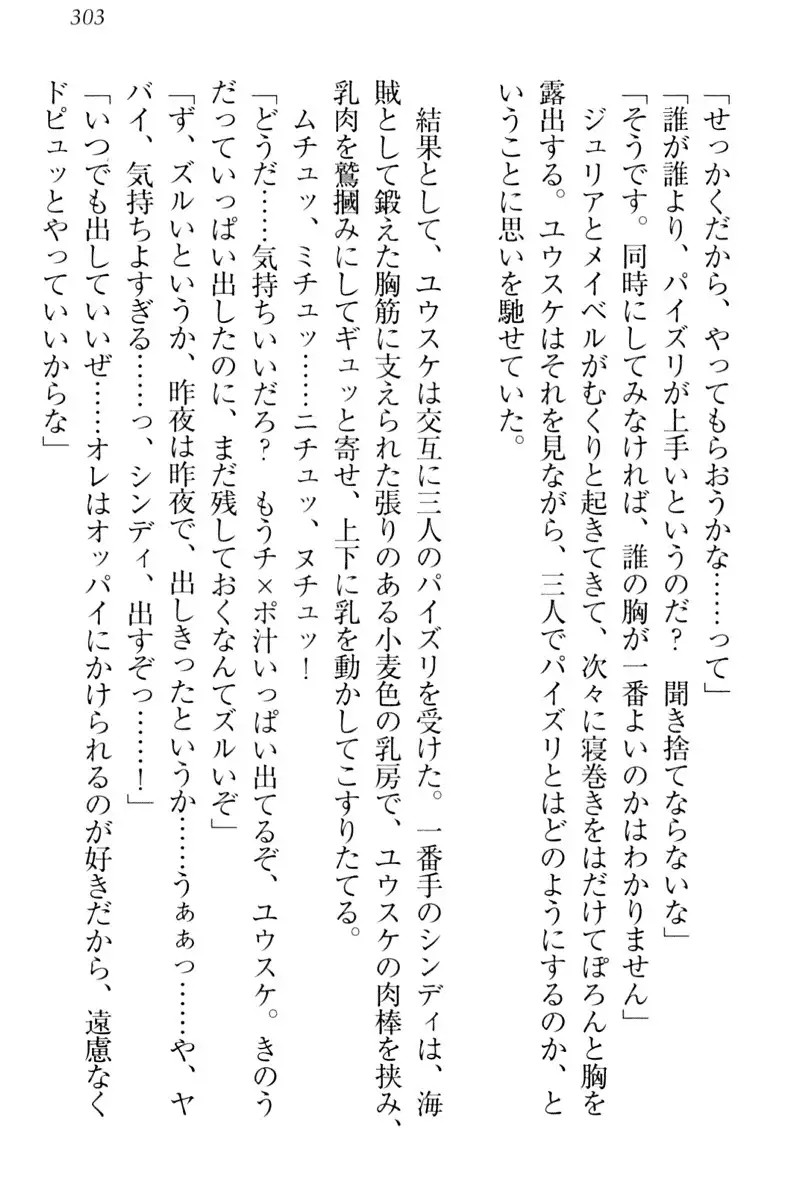 303
「せっかくだから、やってもらおうかな……って」
「誰が誰より、パイズリが上手いというのだ？　聞き捨てならないな」
「そうです。同時にしてみなければ、誰の胸が一番よいのかはわかりません」
　ジュリアとメイベルがむくりと起きてきて、次々に寝巻きをはだけてぽろんと胸を
露出する。ユウスケはそれを見ながら、三人でパイズリとはどのようにするのか、と
いうことに思いを馳せていた。
　結果として、ユウスケは交互に三人のパイズリを受けた。一番手のシンディは、海
賊として鍛えた胸筋に支えられた張りのある小麦色の乳房で、ユウスケの肉棒を挟み、
乳肉を鷲摑みにしてギュッと寄せ、上下に乳を動かしてこすりたてる。
　ムチュッ、ミチュッ……ニチュッ、ヌチュッ！
「どうだ……気持ちいいだろ？　もうチ×ポ汁いっぱい出てるぞ、ユウスケ。きのう
だっていっぱい出したのに、まだ残しておくなんてズルいぞ」
「ず、ズルいというか、昨夜は昨夜で、出しきったというか……うぁぁっ……や、ヤ
バイ、気持ちよすぎる……っ、シンディ、出すぞっ……！」
「いつでも出していいぜ……オレはオッパイにかけられるのが好きだから、遠慮なく
ドピュッとやっていいからな」